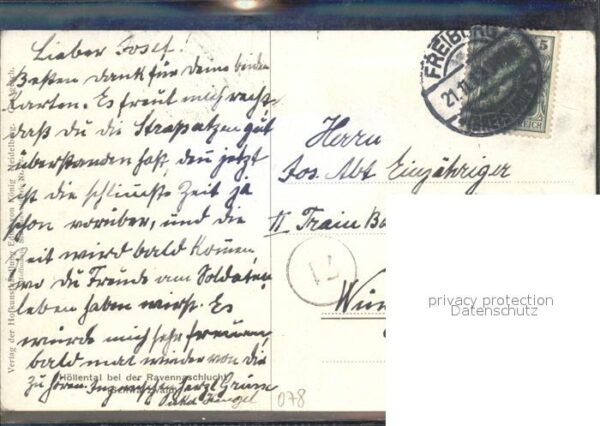 Lieber Josef!
Besten Dank für Deine beiden
Karten. Es freut mich recht
daß du die Strapatzen gut
überstanden hast, denn jetzt
ist die schlimste Zeit ja
schon vorüber, und die
Zeit wird bald kommen,
wo du Freude am Soldaten
leben haben wirst. Es
würde mich sehr freuen,
bald mal wieder von dir
zu hören. Herzl. Grüsse
Höllental bei der Ravennaschlucht
Verlag der Hofkunsthandlung Edm. von König, Heidelberg.
FREIBURG
21.11.
5
REICH
Herrn
Jos. Abt Einjähriger
II Train Ba
71
078
privacy protection
Datenschutz